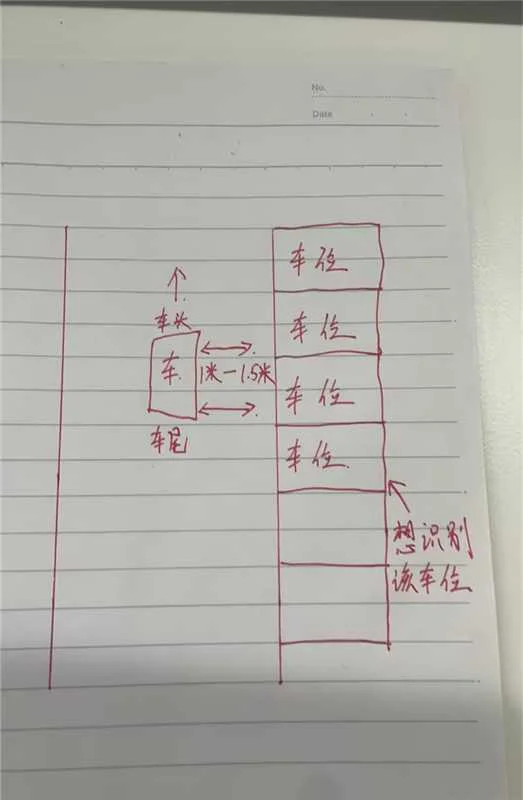 No.
Date
车位
车头
车位
车
1米—1.5米
车位
车尾
车位
想识别
该车位